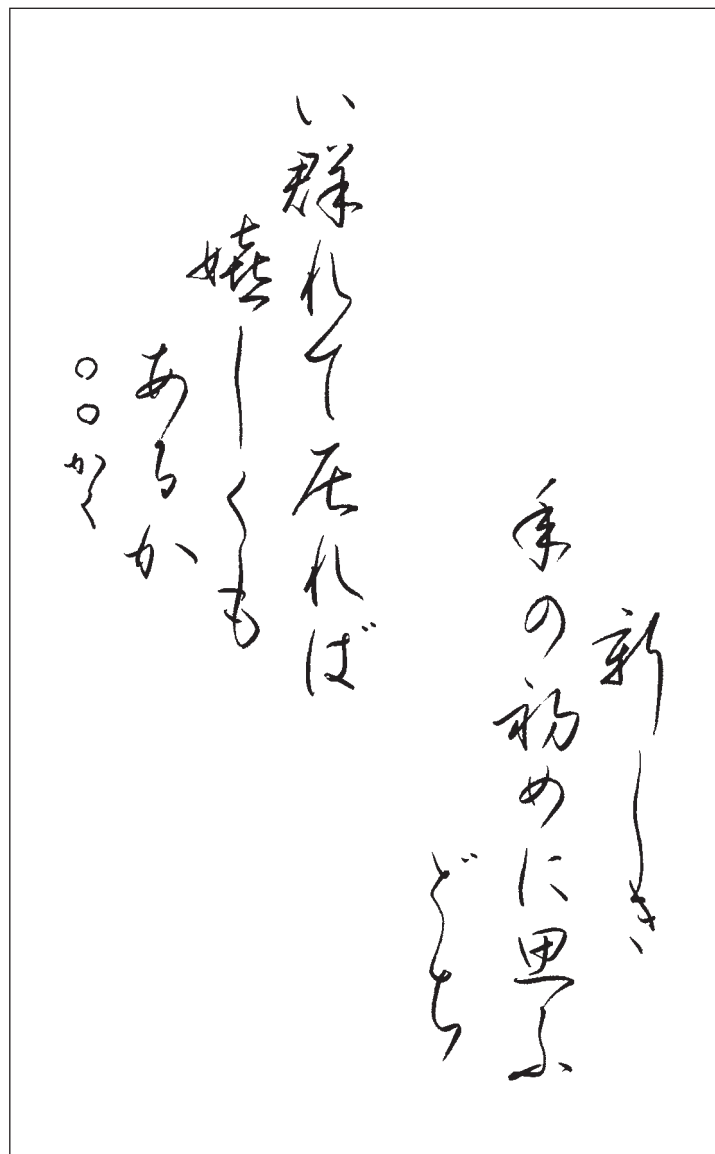 新しき
年の初めに思ふ
どち
い群れて居れば
嬉しくも
あるか
○○かく